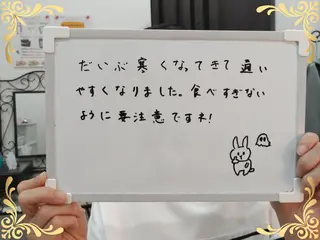 だいぶ寒くなってきて過い
やすくなりました。食べすぎない
ように要注意ですネ!